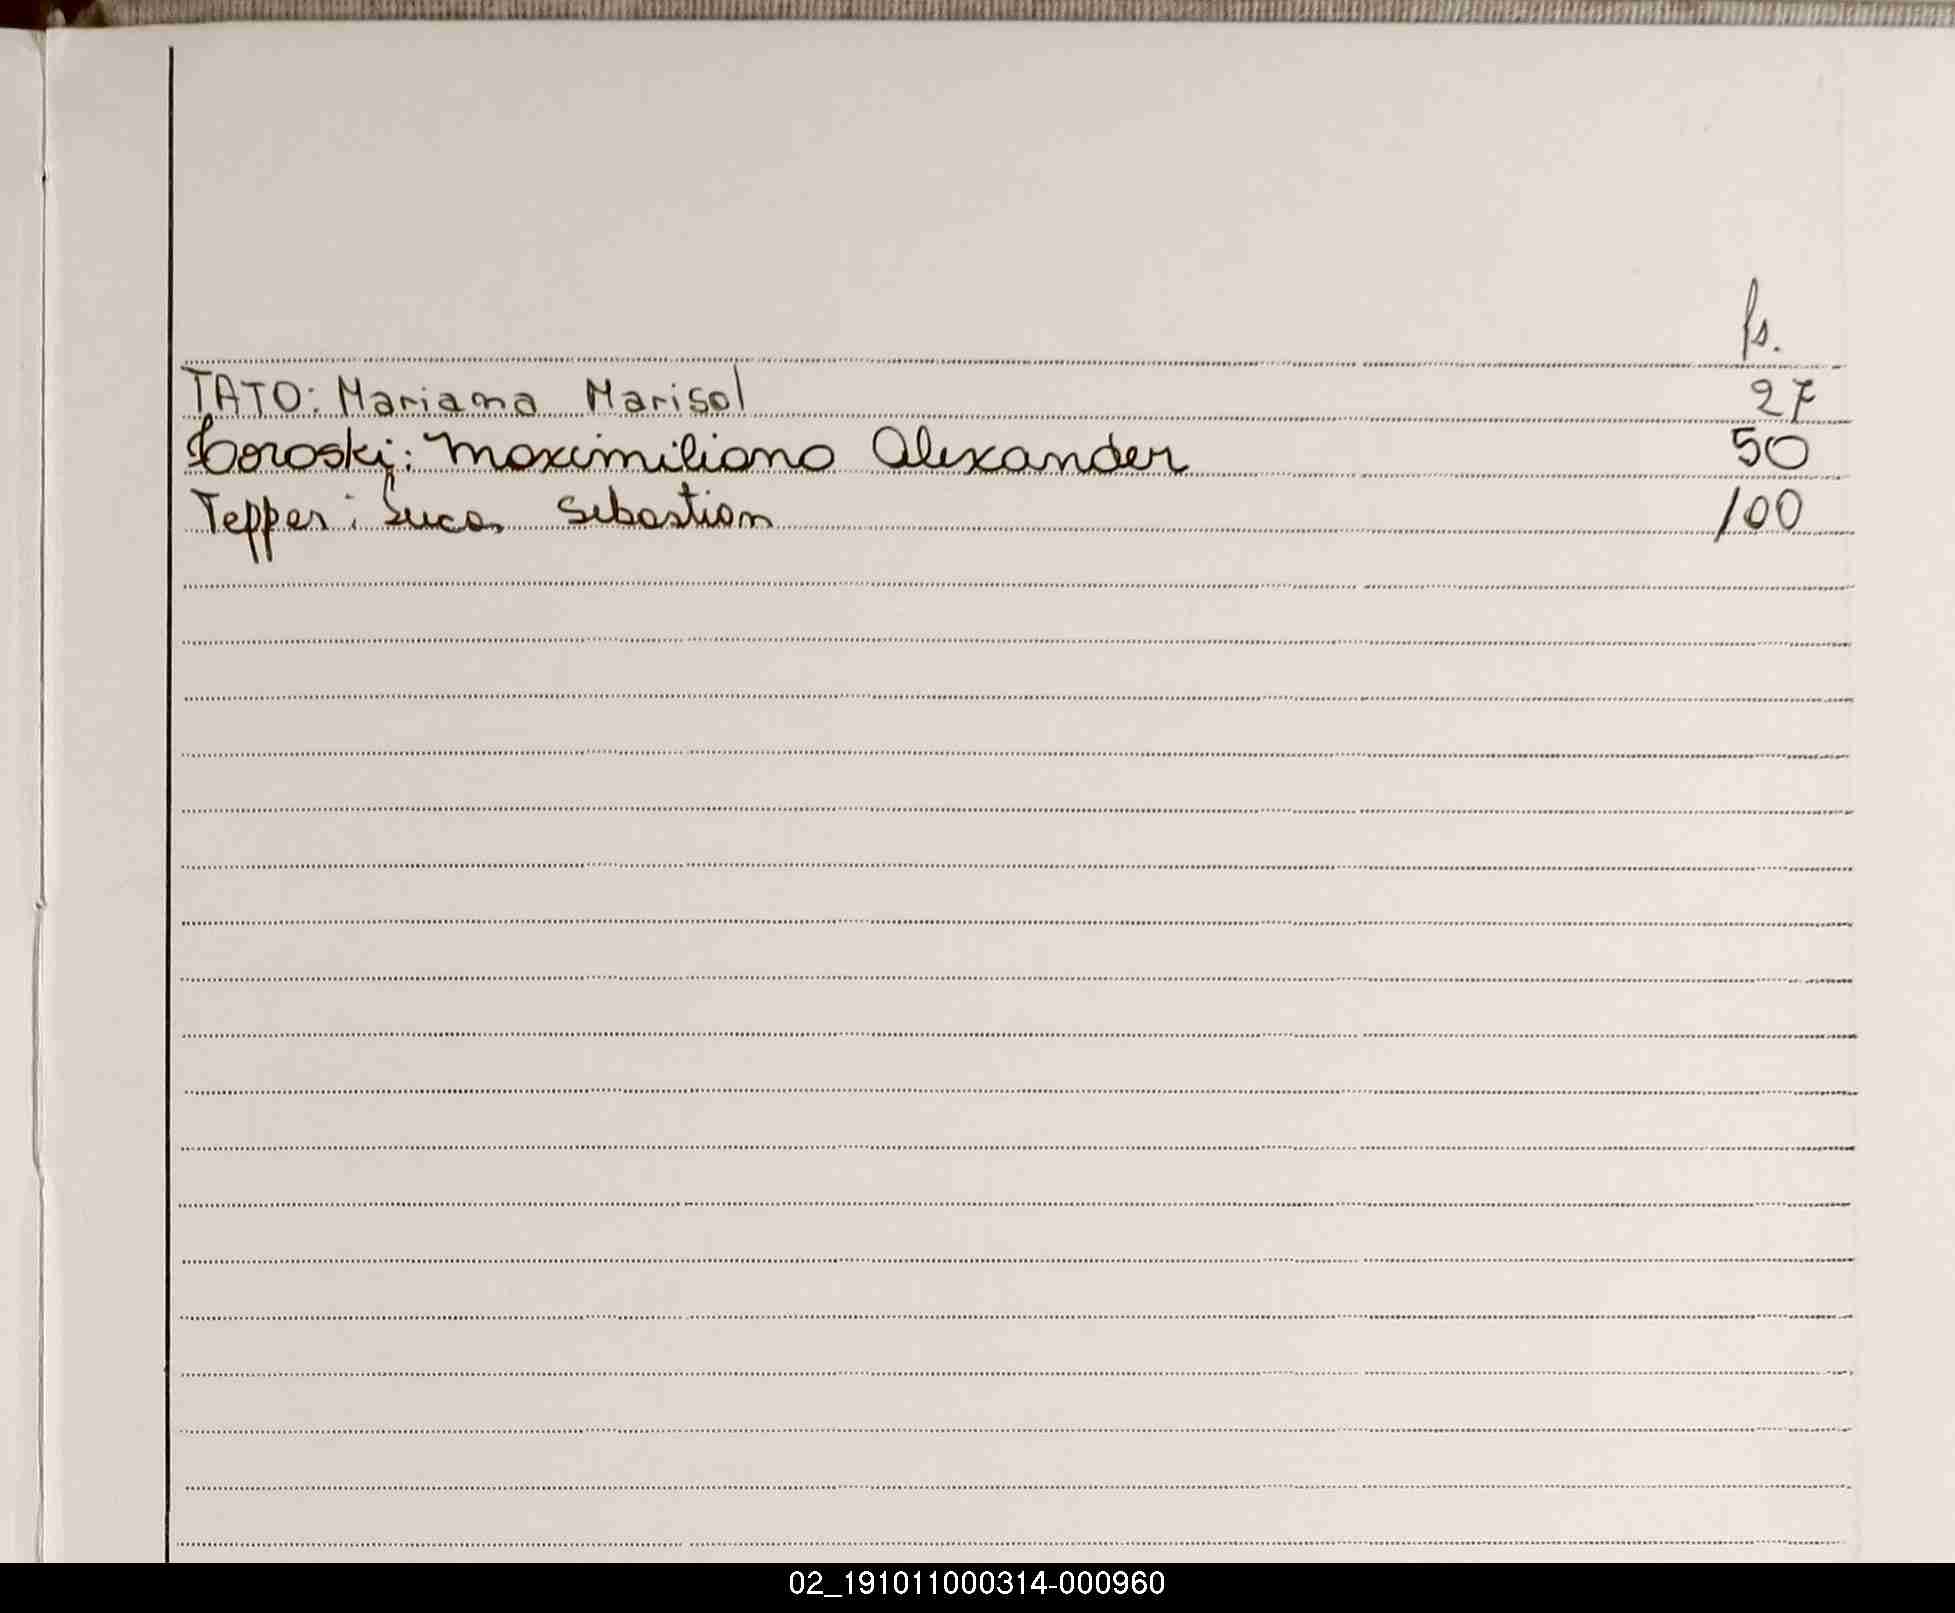 fs.
TATO: Mariana Marisol 27
Toroski: Maximiliano Alexander 50
Tepper: Lucas Sebastian 100
02_191011000314-000960